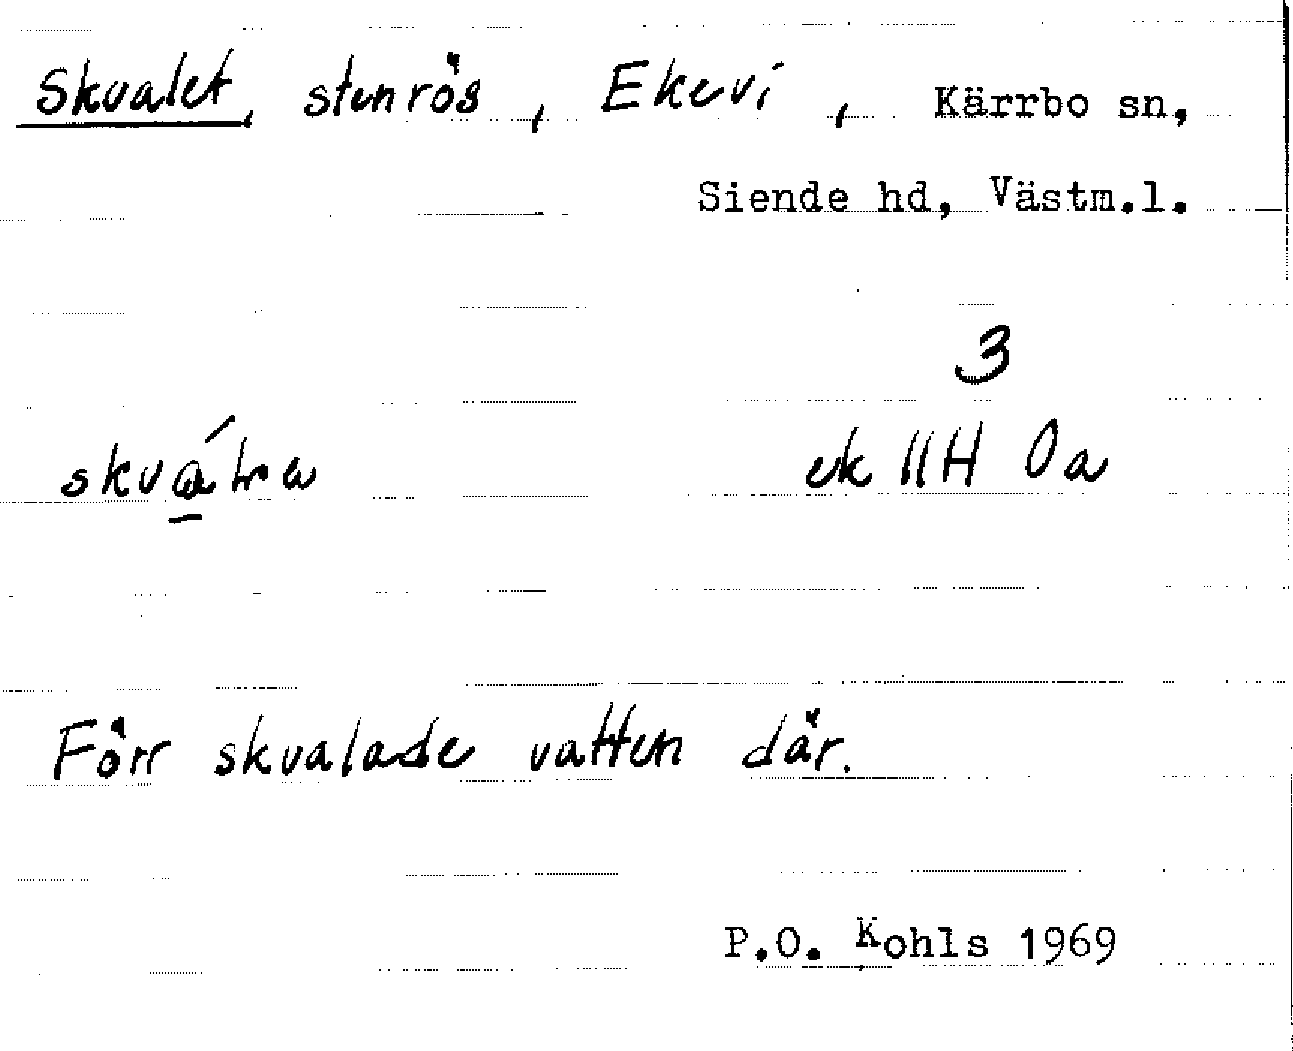 Skvalet, stenrös, Ekevi, Kärrbo sn,
Siende hd, Västm.l.
3
ek 11H 0a
Förr skvalade vatten där.
P.O. Kohls 1969